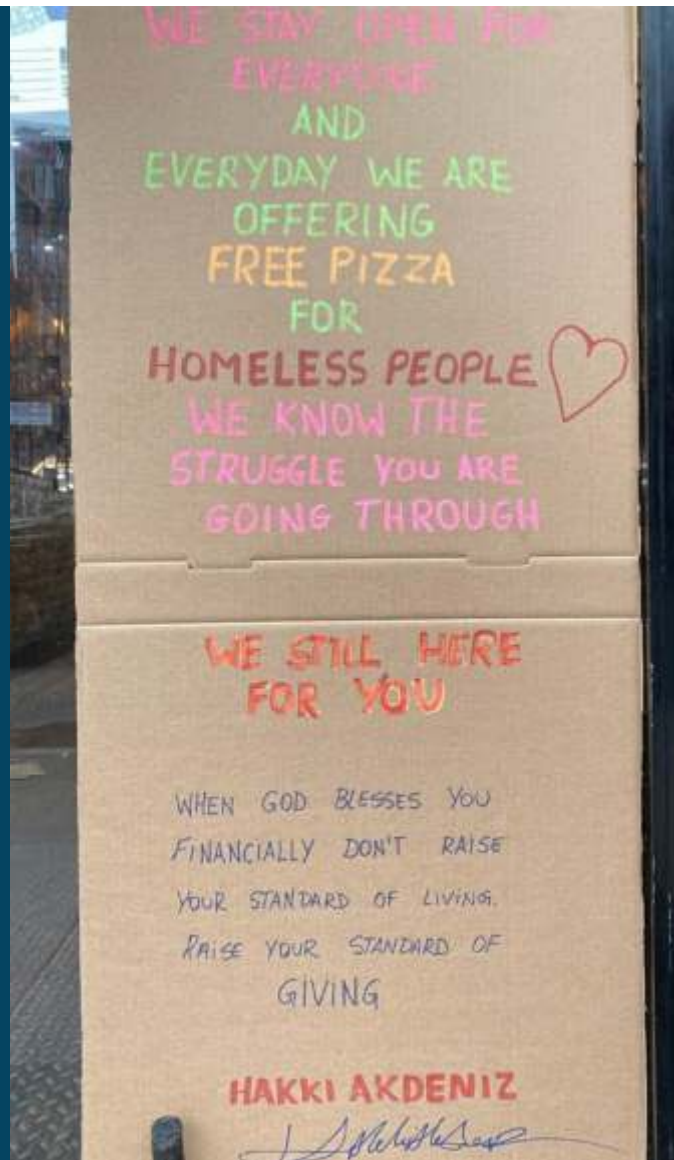 WE STAY OPEN FOR
EVERYONE
AND
EVERYDAY WE ARE
OFFERING
FREE PIZZA
FOR
HOMELESS PEOPLE
WE KNOW THE
STRUGGLE YOU ARE
GOING THROUGH
WE STILL HERE
FOR YOU
WHEN GOD BLESSES YOU
FINANCIALLY DON'T RAISE
YOUR STANDARD OF LIVING.
RAISE YOUR STANDARD OF
GIVING
HAKKI AKDENIZ